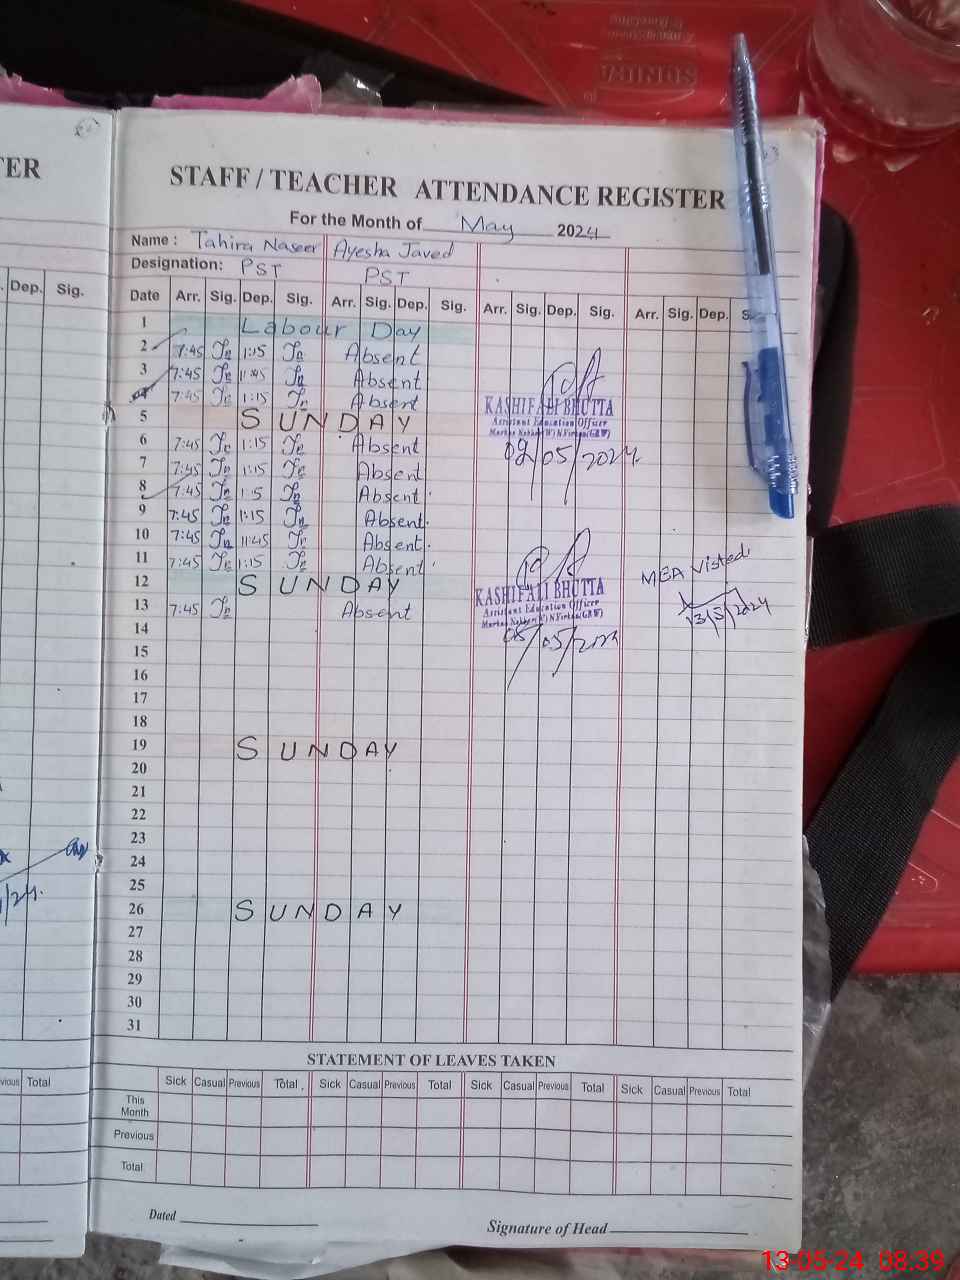 TER
STAFF / TEACHER ATTENDANCE REGISTER
For the Month of May 2024
Name : Tahira Naseer Ayesha Javed
Designation: PST PST
Dep. Sig.
Date Arr. Sig. Dep. Sig. Arr. Sig. Dep. Sig. Arr. Sig. Dep. Sig. Arr. Sig. Dep. S
1 Labour Day
2 7:45 1:15 Absent
3 7:45 11:45 Absent
04 7:45 1:15 Absent
5 SUNDAY
KASHIF ALI BHUTTA
Assistant Education Officer
6 7:45 1:15 Absent
02/05/2024
7 7:45 1:15 Absent
8 7:45 1:5 Absent
9 7:45 1:15 Absent.
10 7:45 11:45 Absent.
11 7:45 1:15 Absent
MEA Visted
12 SUNDAY
KASHIF ALI BHUTTA
Assistant Education Officer
13 7:45 Absent
13/5/2024
14
15
16
17
18
19 SUNDAY
20
21
22
23
24
25
26 SUNDAY
27
28
29
30
31
STATEMENT OF LEAVES TAKEN
Previous Total
Sick Casual Previous Total Sick Casual Previous Total Sick Casual Previous Total Sick Casual Previous Total
This Month
Previous
Total
Dated
Signature of Head
13-05-24 08:39